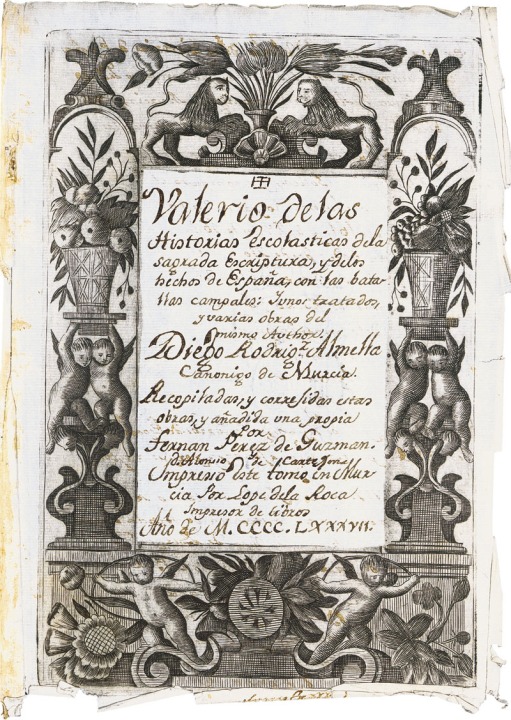 Valerio de las
Historias Escolasticas de la
sagrada Escriptura, y de los
hechos de España, con las bata-
llas campales: Ivnos tratados,
y varias obras del
mismo Author.
Diego Rodrigz. Almella
Canonigo de Murcia.
Recopiladas, y corregidas estas
obras, y añadida una propia
Por
Fernan Perez de Guzman.
de
Impresso este tomo en Mur-
cia Por Lope de la Roca
Impresor de libros
Año de M.CCCC.LXXXVII.